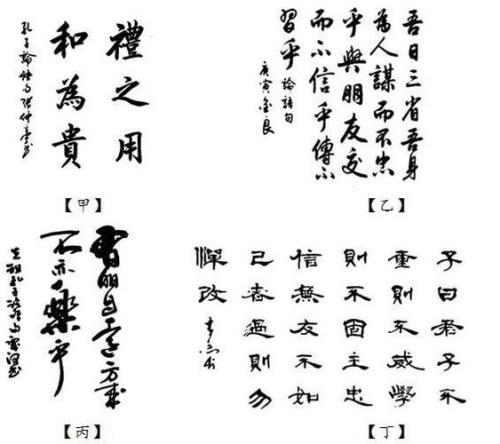 禮之用
和為貴
孔子論語句
【甲】
吾日三省吾身
為人謀而不忠
乎與朋友交
而不信乎傳不
習乎 論語句
庚寅
【乙】
有朋自遠方來
不亦樂乎
先祖孔子
【丙】
子曰君子不
重則不威學
則不固主忠
信無友不如
己者過則勿
憚改
【丁】